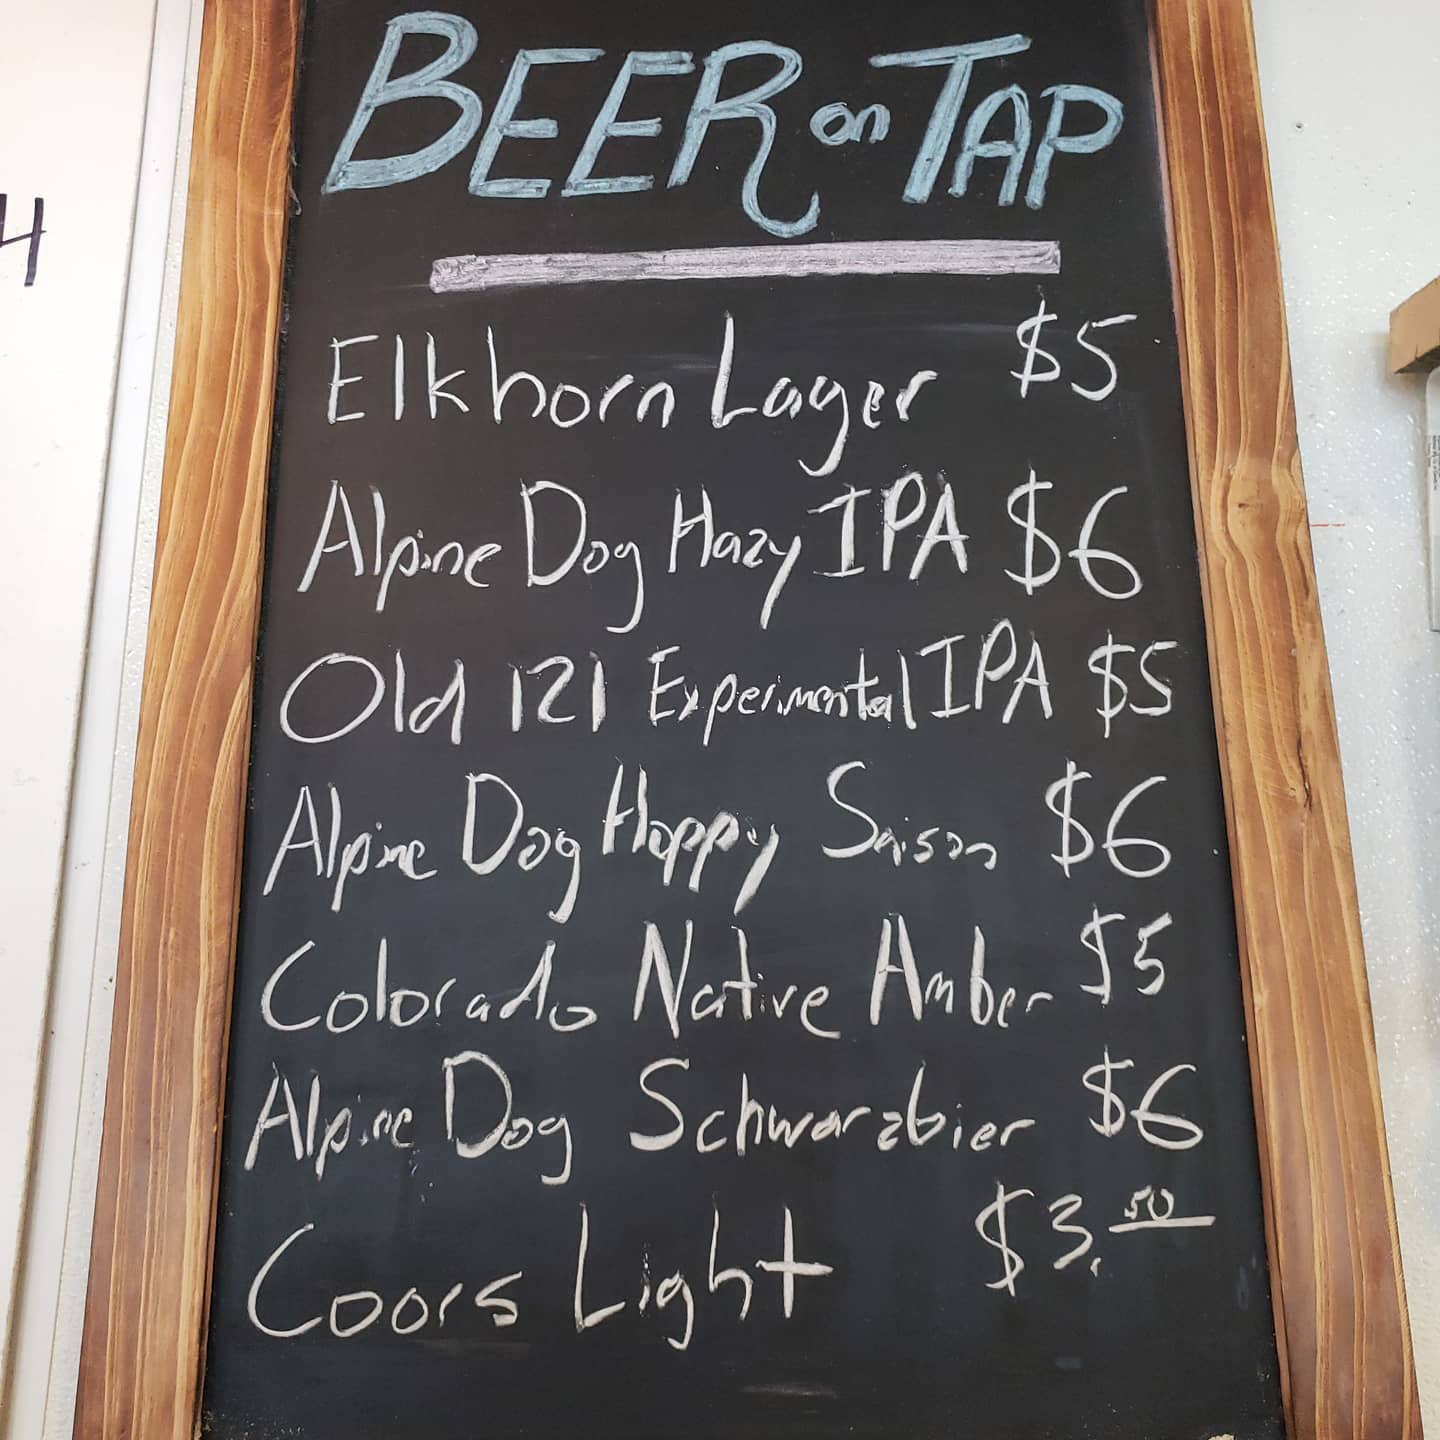 BEER on TAP
Elkhorn Lager $5
Alpine Dog Hazy IPA $6
Old 121 Experimental IPA $5
Alpine Dog Hoppy Saison $6
Colorado Native Amber $5
Alpine Dog Schwarzbier $6
Coors Light $3.50